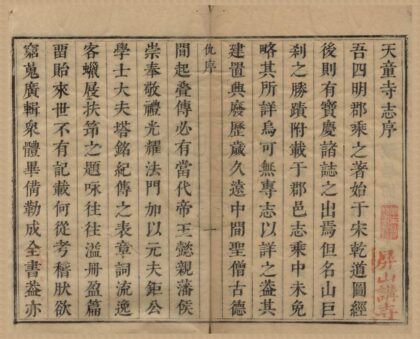 天童寺志序
吾四明郡乘之著始于宋乾道圖經
後則有寶慶諸誌之出焉但名山巨
刹之勝蹟附載于郡邑志乘中未免
略其所詳烏可無專志以詳之葢其
建置興廢歷歲久遠中間聖僧古德
仇序
一
間起疊傳必有當代帝王懿親藩侯
崇奉敬禮光耀法門加以元夫鉅公
學士大夫塔銘紀傳之表章詞流逸
客蠟展扶筇之題咏往往溢冊盈篇
畱貽來世不有記載何從考稽狀欲
窮蒐廣輯衆體畢備勒成全書葢亦
屏山講寺